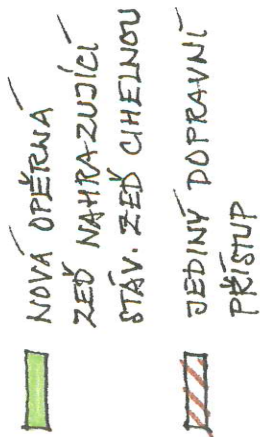 NOVÁ OPĚRNÁ
ZEĎ NAHRAZUJÍCÍ
STÁV. ZEĎ CIHELNOU
JEDINÝ DOPRAVNÍ
PŘÍSTUP